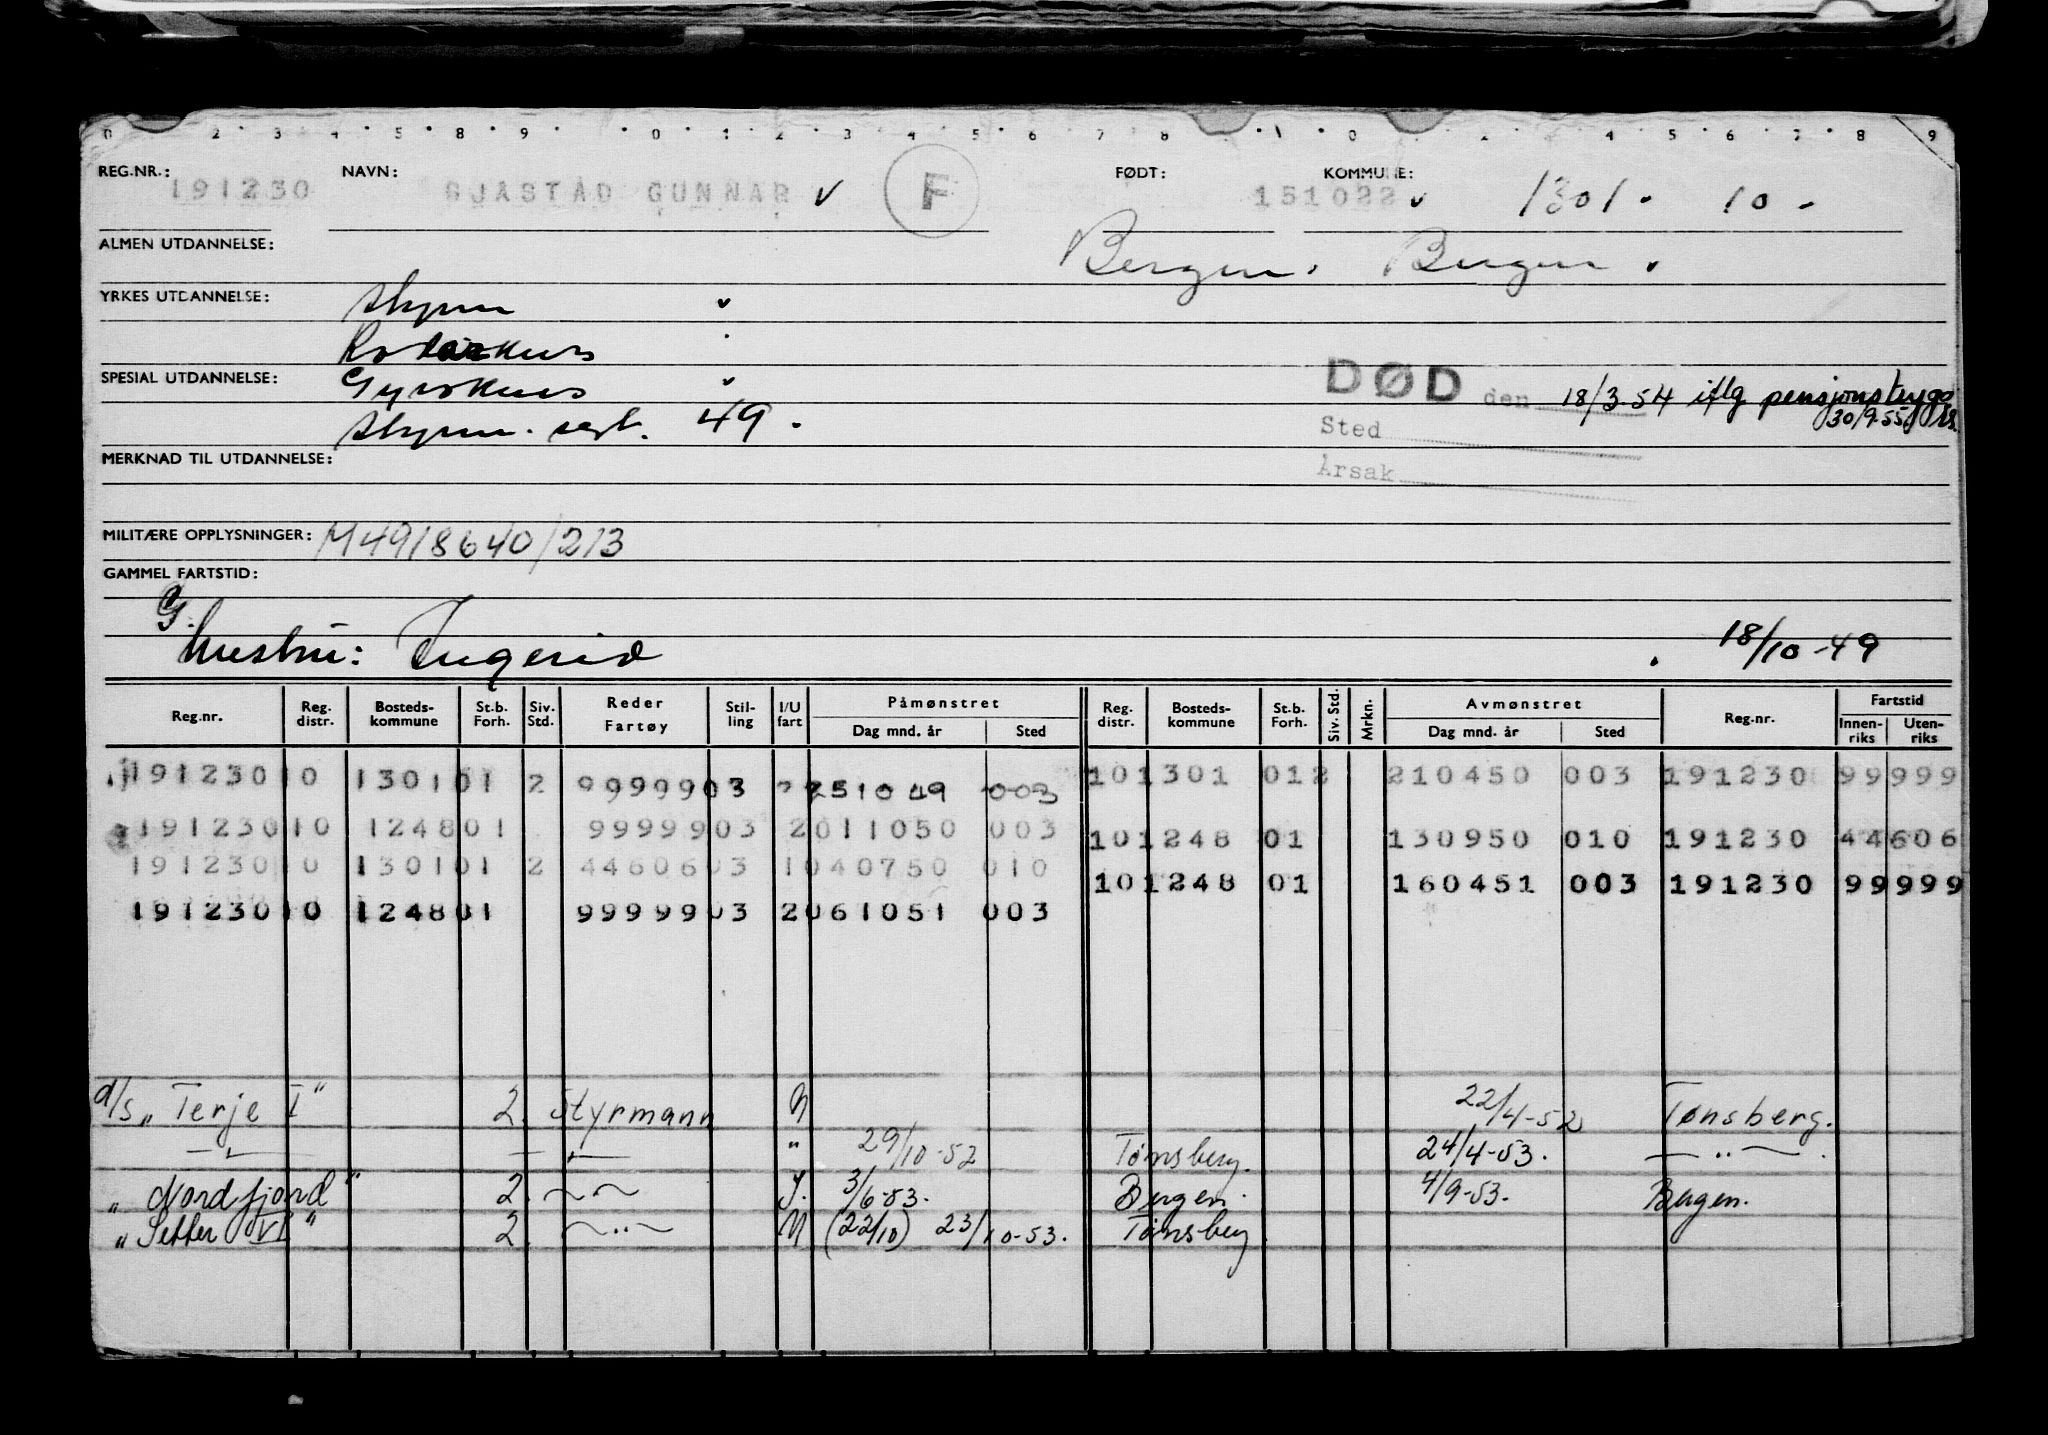 REG.NR.: 191230 NAVN: GJASTAD GUNNAR v F FØDT: 151022 v KOMMUNE: 1301. 10.
ALMEN UTDANNELSE: Bergen. Bergen.
YRKES UTDANNELSE: styrm v
Radarkurs
SPESIAL UTDANNELSE: Gyrokurs v DØD den 18/3.54 iflg pensjonstrygd
styrm. sert. 49. Sted 30/9-55
MERKNAD TIL UTDANNELSE: Årsak
MILITÆRE OPPLYSNINGER: M49/8640/213
GAMMEL FARTSTID:
G.
hustru: Ingerid . 18/10-49
Reg.nr. Reg. distr. Bosteds-kommune St.b. Forh. Siv. Std. Reder Fartøy Stil-ling I/U fart Påmønstret Dag mnd. år Sted Reg. distr. Bosteds-kommune St.b. Forh. Siv. Std. Mrkn. Avmønstret Dag mnd. år Sted Reg.nr. Fartstid Innen-riks Uten-riks
191230 10 1301 01 2 99999 03 2 251049 003 10 1301 01 2 210450 003 191230 99999
191230 10 1248 01 99999 03 2 011050 003 10 1248 01 130950 010 191230 44606
191230 10 1301 01 2 44606 03 1 040750 010 10 1248 01 160451 003 191230 99999
191230 10 1248 01 99999 03 2 061051 003
d/s "Terje I" 2. Styrmann U 22/4-52 Tønsberg.
— " — — " — " 29/10-52 Tønsberg. 24/4-53. — " —.
" Nordfjord " 2. — " — I. 3/6-53. Bergen. 4/9-53. Bergen.
" Setter VI " 2. — " — U (22/10) 23/10-53. Tønsberg